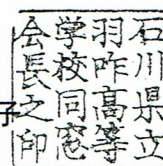 石川県立
羽咋高等
学校同窓
会長之印
子